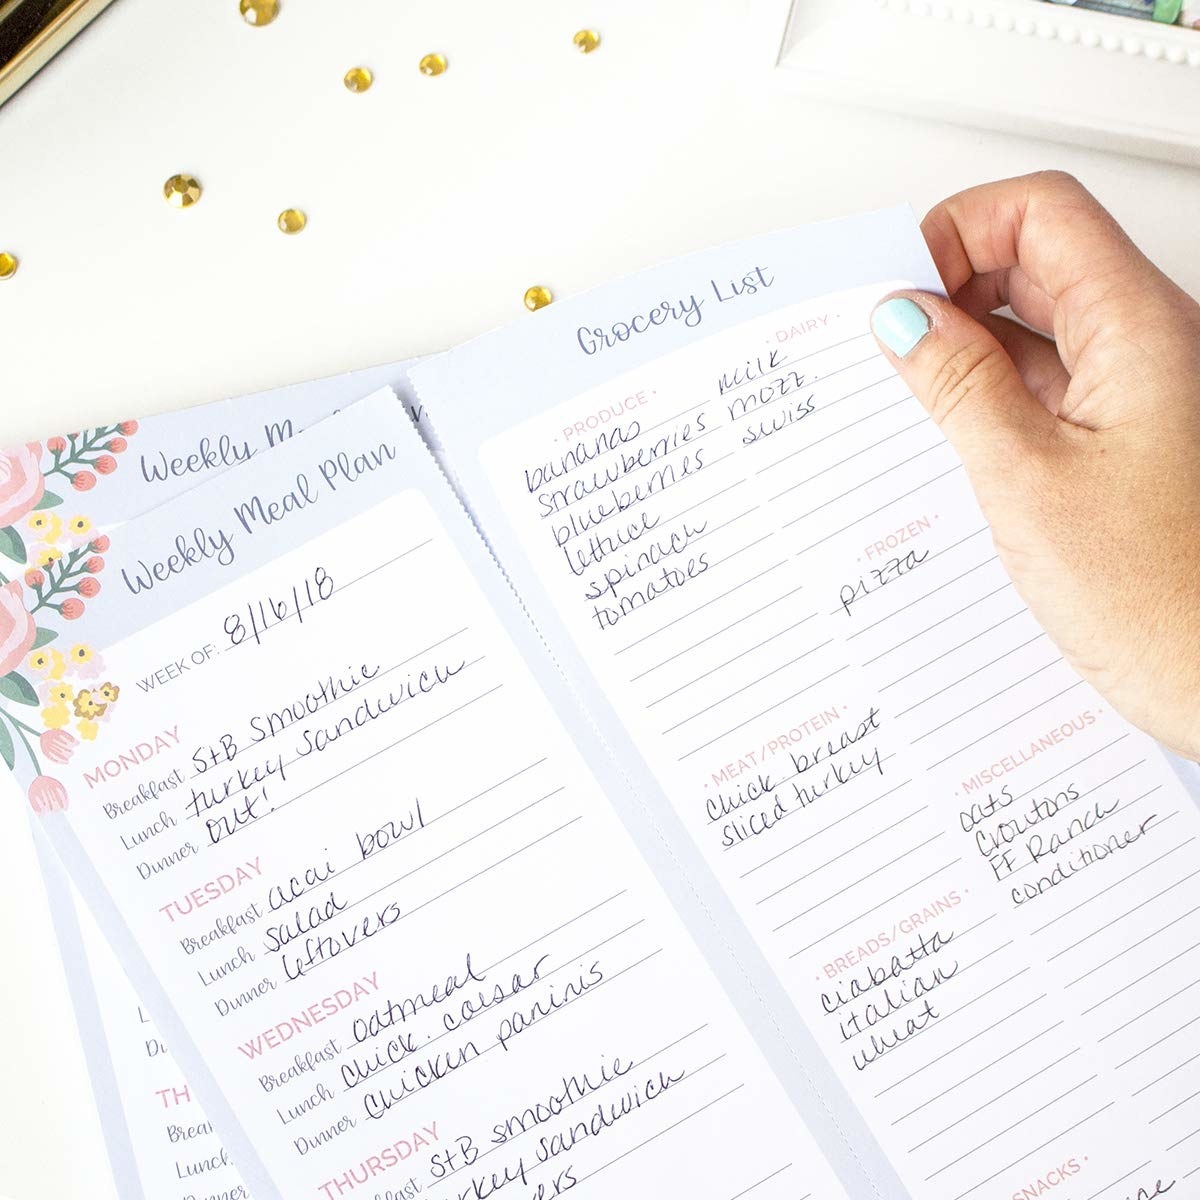 Weekly M
Weekly Meal Plan
WEEK OF: 8/16/18
MONDAY
Breakfast S+B smoothie
Lunch turkey sandwich
Dinner out!
TUESDAY
Breakfast acai bowl
Lunch salad
Dinner leftovers
WEDNESDAY
Breakfast oatmeal
Lunch chick. caesar
Dinner chicken paninis
THURSDAY
Breakfast S+B smoothie
turkey sandwich
Grocery List
· PRODUCE ·
bananas
strawberries
blueberries
lettuce
spinach
tomatoes
· DAIRY ·
milk
mozz.
swiss
· FROZEN ·
pizza
· MEAT/PROTEIN ·
chick. breast
sliced turkey
· MISCELLANEOUS ·
oats
croutons
FF Ranch
conditioner
· BREADS/GRAINS ·
ciabatta
italian
wheat
SNACKS ·
L
Di
TH
Brea
Lunch
Dinner